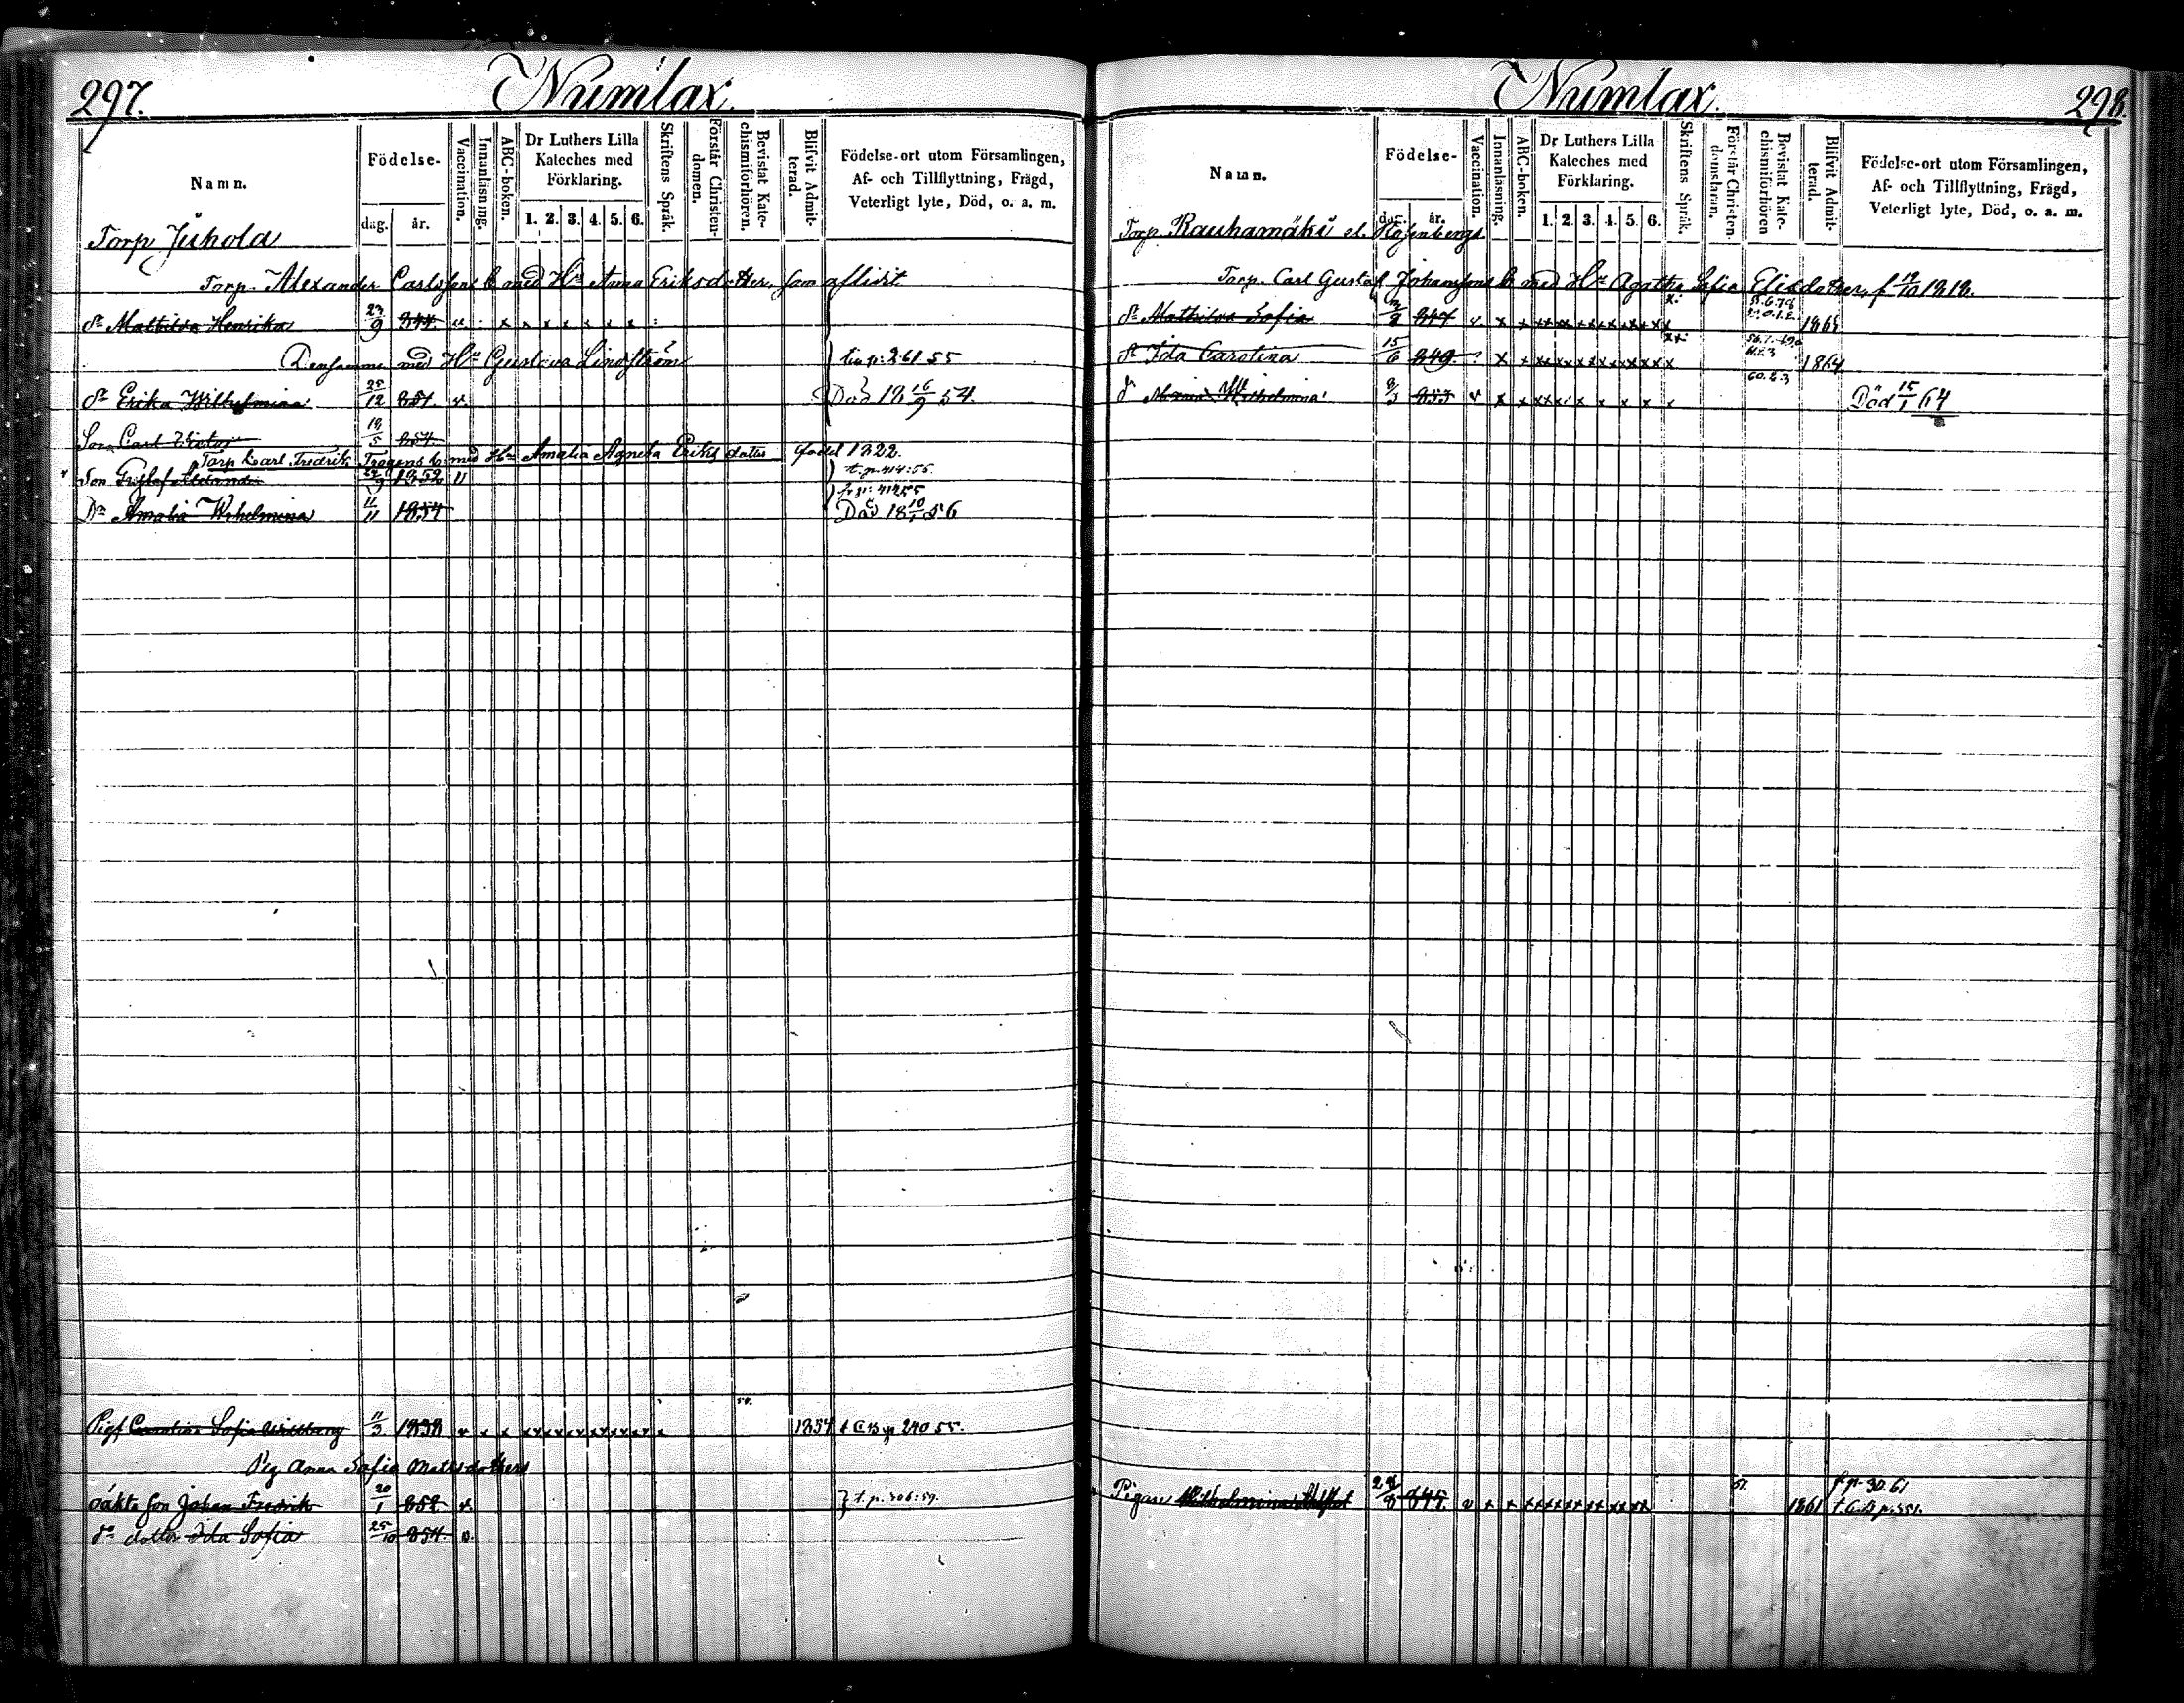 297.
Numlax.
Namn.
Födelse-
dag. år.
Vaccination.
Innanläsning.
ABC-boken.
Dr Luthers Lilla Kateches med Förklaring.
1. 2. 3. 4. 5. 6.
Skriftens Språk.
Förstår Christendomen.
Bevistat Katechismiförhören.
Blifvit Admitterad.
Födelse-ort utom Församlingen,
Af- och Tillflyttning, Frägd,
Veterligt lyte, Död, o. a. m.
Torp Juhola
Torp. Alexander Carlssons b med Hu Anna Eriksdotter, som aflidit
dr Mathilda Henrika 23/9 844. x x x x x x x
Densamme med Hu Gustava Lindström tin p: 261 55
dr Erika Wilhelmina 25/12 851. v. Död 18 16/9 54.
Son Carl Victor 19/5 854.
Torp Carl Fredrik b med Hu Amalia Agneta Eriks dotter född 1822.
Son Gustaf 1852 t. p. 414: 55.
Dr Amalia Wilhelmina 11/11 1854 Död 18 10/1 56
Carolina Sofia 11/3 1838 v x x xxxxxxxxxxxx x 1854 t C B p 240 55.
Pig Anna Sofia Mattsdotters
oäkta son Johan Fredrik 20/1 852 v. t. p. 306: 59.
dr dotter Ida Sofia 25/10 854. v.
298.
Numlax.
Namn.
Födelse-
dag. år.
Vaccination.
Innanläsning.
ABC-boken.
Dr Luthers Lilla Kateches med Förklaring.
1. 2. 3. 4. 5. 6.
Skriftens Språk.
Förstår Christendomsläran.
Bevistat Katechismiförhören
Blifvit Admitterad.
Födelse-ort utom Församlingen,
Af- och Tillflyttning, Frägd,
Veterligt lyte, Död, o. a. m.
Torp Rauhamäki el. Rosenbergs
Torp. Carl Gustaf Johanssons b med Hu Agatha Sofia Elisdotter, f 19/10 1818.
dr Mathilda Sofia 847 v x x xx xx xx xx xx xx x
dr Ida Carolina 15/6 849. x x xx xx xx xx xx xx x 60. 2. 3 1864
dr Maria Wilhelmina 853 v x x x x x x x Död 15/1 64
Pigan Wilhelmina 845. v x x xxxxxxxxxxxx 1861 fr p. 30. 61
t. C. B p. 551.